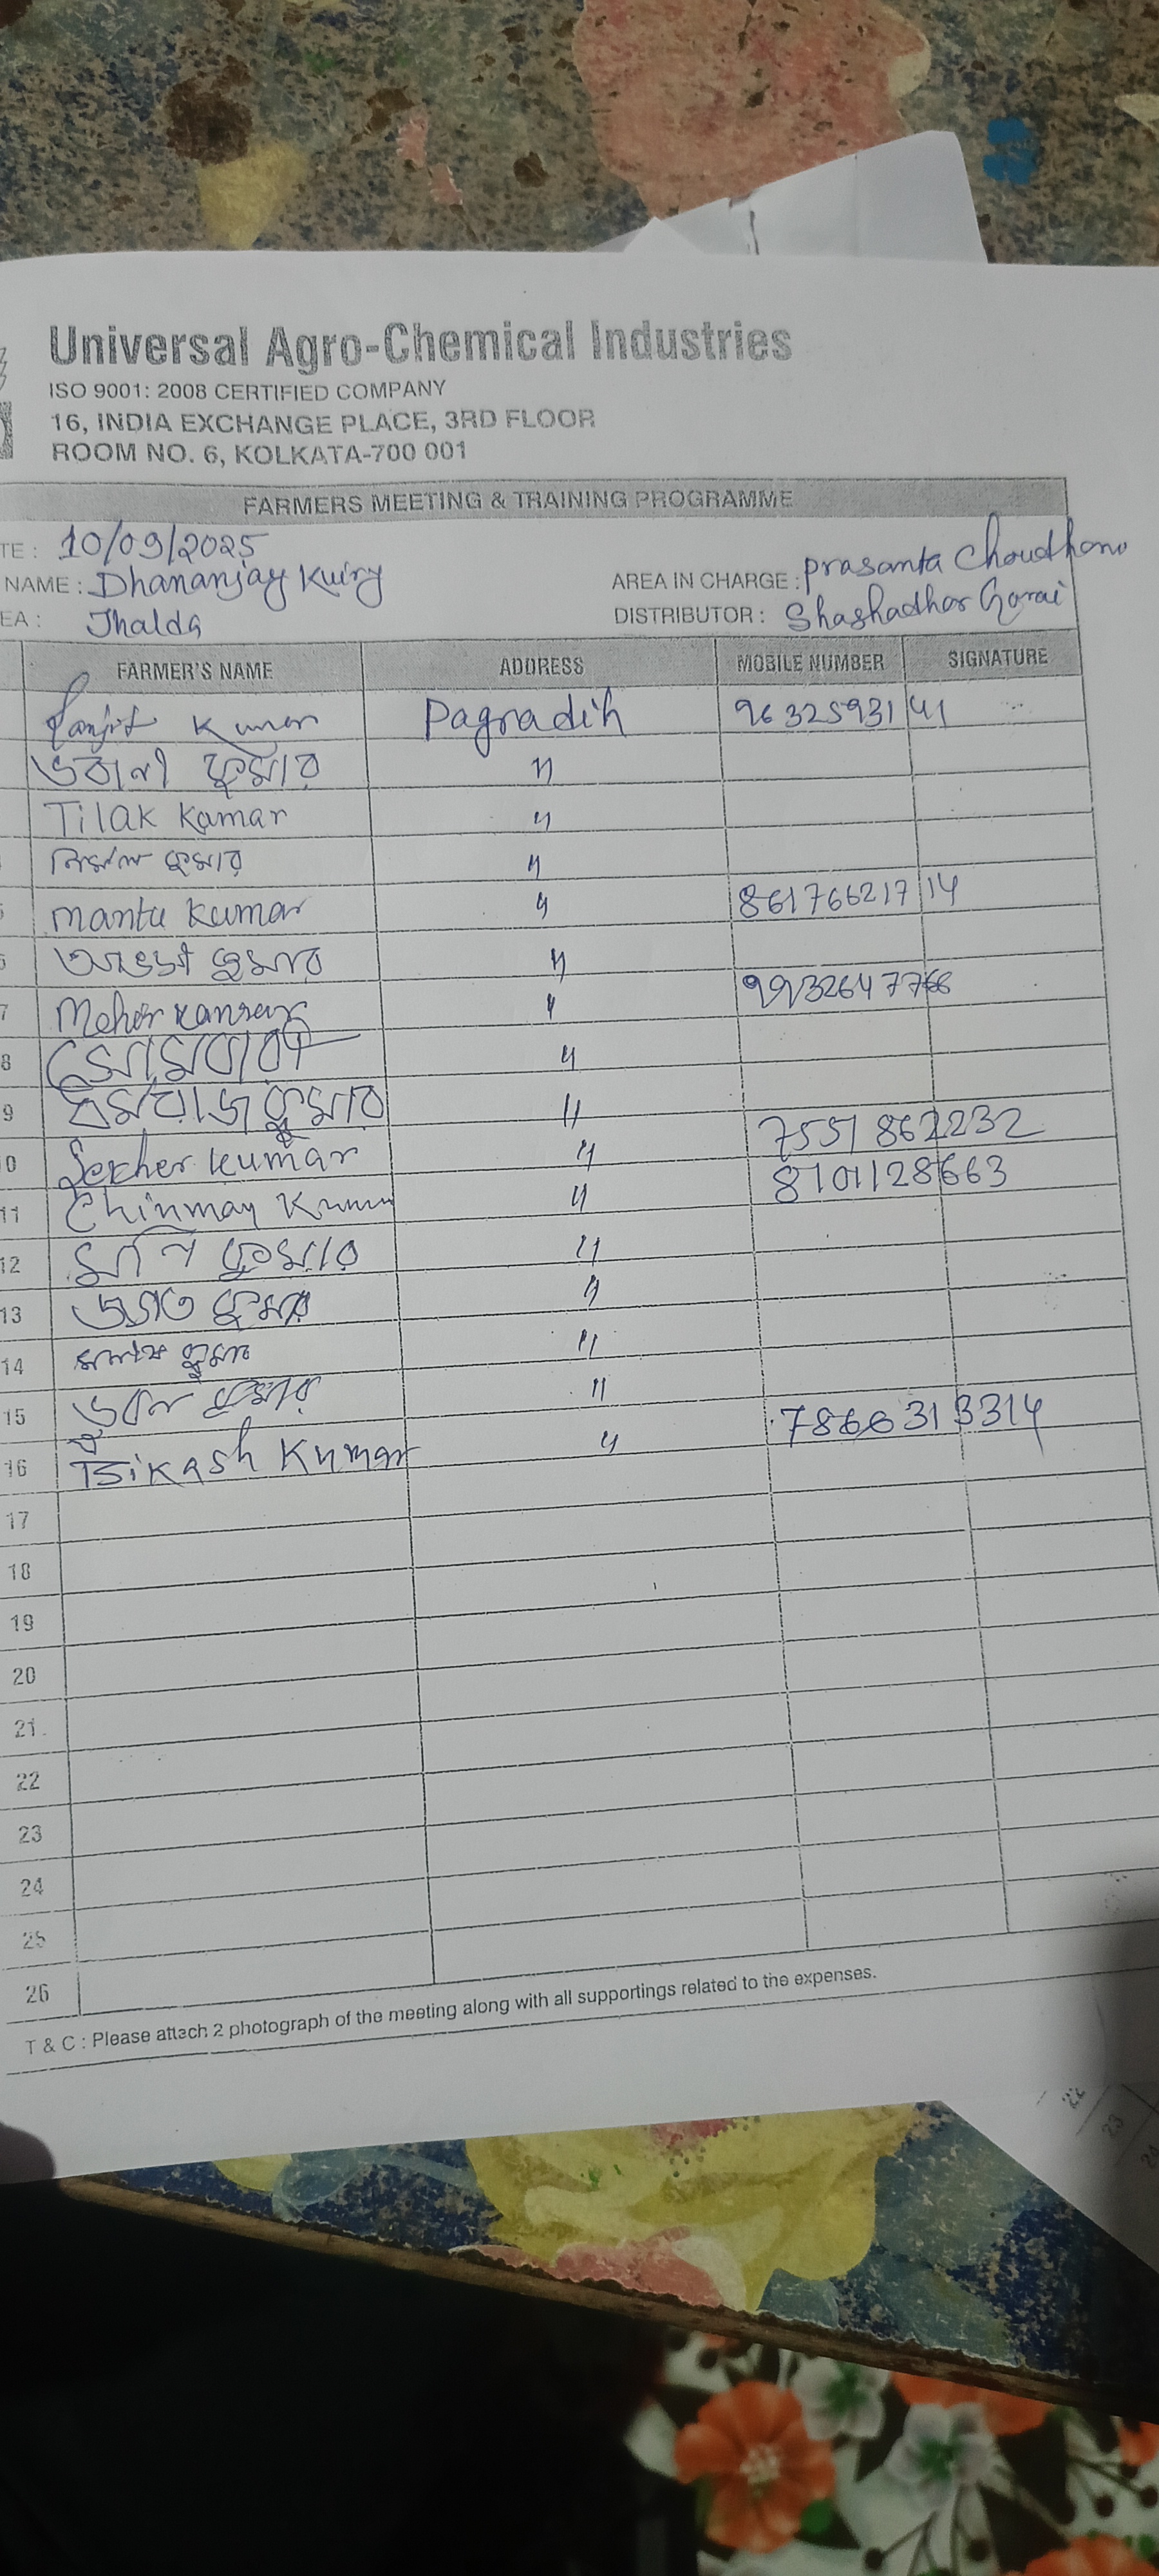 Universal Agro-Chemical Industries
ISO 9001: 2008 CERTIFIED COMPANY
16, INDIA EXCHANGE PLACE, 3RD FLOOR
ROOM NO. 6, KOLKATA-700 001
FARMERS MEETING & TRAINING PROGRAMME
TE : 10/09/2025
NAME : Dhananjay Kuiry AREA IN CHARGE : Prasanta
EA : Jhalda DISTRIBUTOR : Shashadhar Gorai
FARMER'S NAME ADDRESS MOBILE NUMBER SIGNATURE
Ranjit Kumar Pagradih 9632593141
ভবানী কুমার 〃
Tilak Kamar 〃
নির্মল কুমার 〃
Mantu Kumar 〃 8617662171 14
কুমার 〃
7 〃
8 〃
9 কুমার 〃
0 Sekher Kumar 〃 7551862232
11 Chinmay 〃 8101128663
12 কুমার 〃
13 জগত কুমার 〃
14 কুমার 〃
15 কুমার 〃
16 Bikash Kumar 〃 7866313314
17
18
19
20
21.
22
23
24
25
26
T & C : Please attach 2 photograph of the meeting along with all supportings related to the expenses.
22
23
24